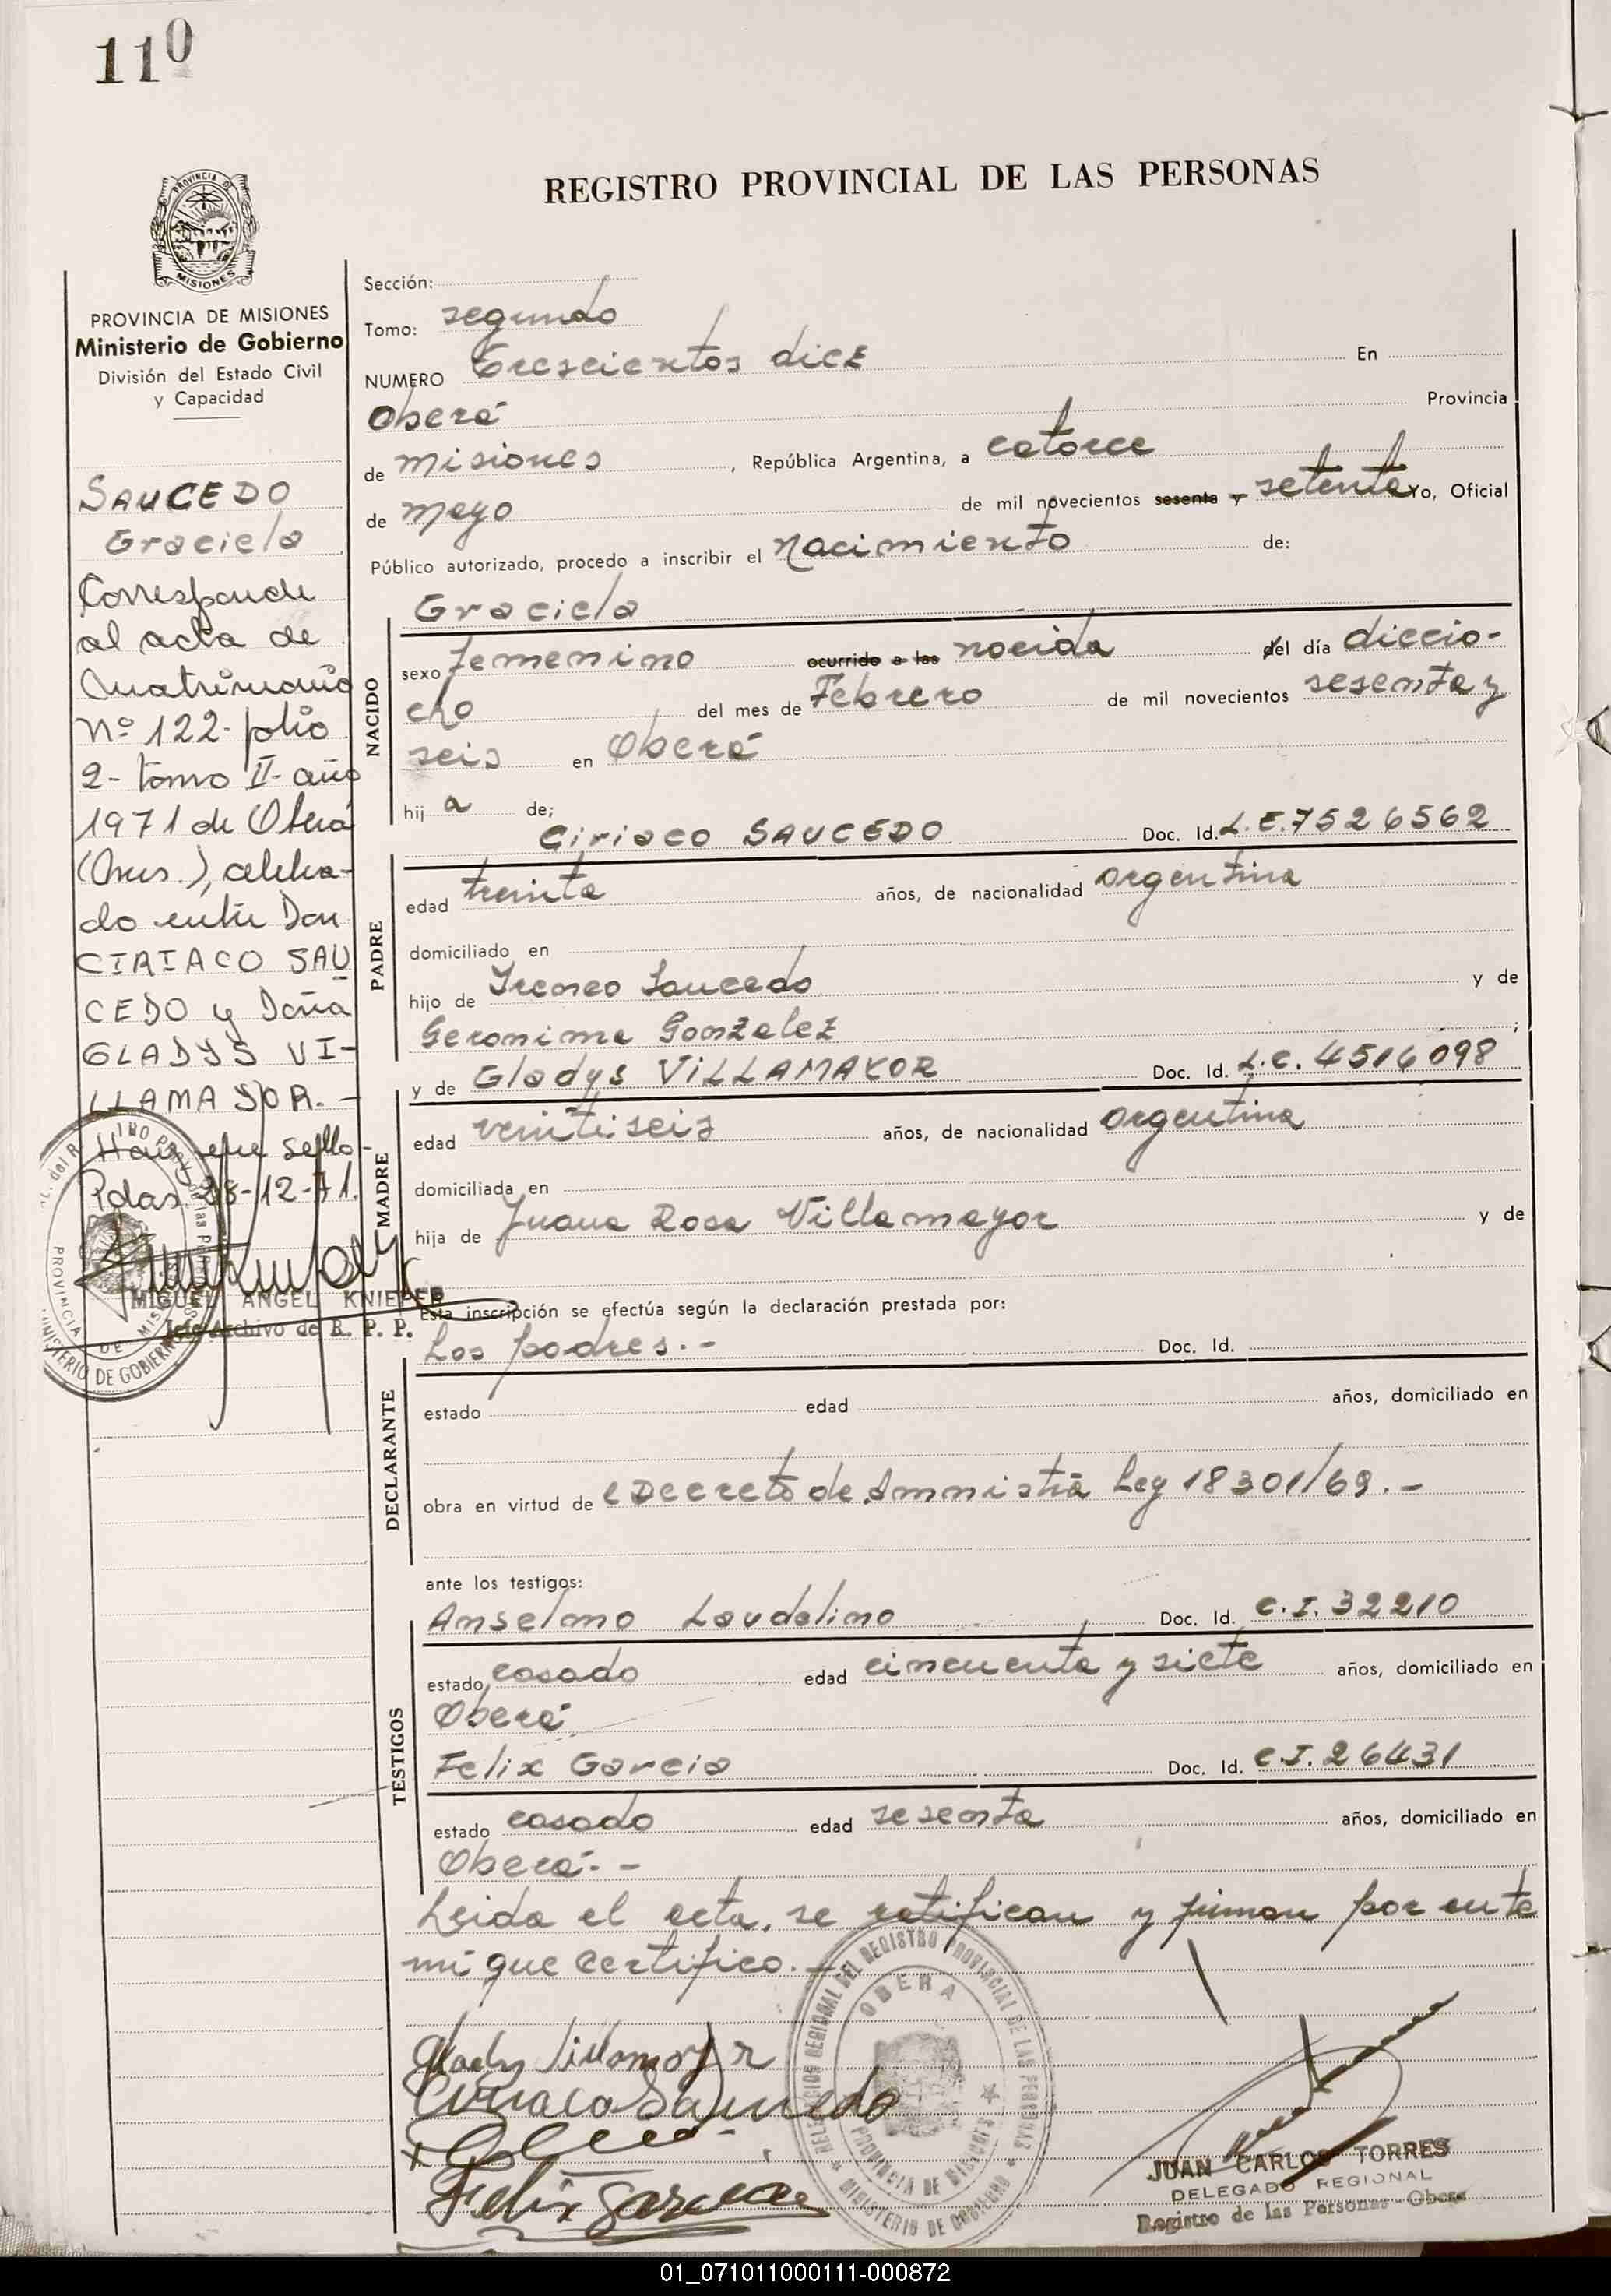 110
REGISTRO PROVINCIAL DE LAS PERSONAS
PROVINCIA DE MISIONES
PROVINCIA DE MISIONES
Ministerio de Gobierno
División del Estado Civil
y Capacidad
SAUCEDO
Graciela
Corresponde
al acta de
Matrimonio
Nº 122- folio
2- tomo II- año
1971 de Oberá
(Mnes.), celebra-
do entre Don
CIRIACO SAU
CEDO y Doña
GLADYS VI-
LLAMAYOR. -
sello-
Pdas. 28-12-71.
MIGUEL ANGEL KNIEPER
Jefe Archivo de R. P. P.
Sección:
Tomo: segundo
NUMERO Trescientos diez En
Oberá Provincia
de Misiones, República Argentina, a catorce
de mayo de mil novecientos sesenta y setenta Yo, Oficial
Público autorizado, procedo a inscribir el nacimiento de:
NACIDO
Graciela
sexo femenino ocurrido a las nacida del día diecio-
cho del mes de Febrero de mil novecientos sesenta y
seis en Oberá
hij a de;
PADRE
Ciriaco SAUCEDO Doc. Id. L.E. 7526562
edad treinta años, de nacionalidad argentina
domiciliado en
hijo de Ireneo Saucedo y de
Geronima Gonzalez ;
MADRE
y de Gladys VILLAMAYOR Doc. Id. L.C. 4516098
edad veintiseis años, de nacionalidad argentina
domiciliada en
hija de Juana Rosa Villamayor y de
Esta inscripción se efectúa según la declaración prestada por:
DECLARANTE
Los padres.- Doc. Id.
estado edad años, domiciliado en
obra en virtud de Decreto de Amnistia Ley 18301/69.-
ante los testigos:
TESTIGOS
Anselmo Laudelino Doc. Id. C.I. 32210
estado casado edad cincuenta y siete años, domiciliado en
Oberá
Felix Garcia Doc. Id. C.I. 26431
estado casado edad sesenta años, domiciliado en
Oberá.-
Leida el acta, se ratifican y firman por ante
mi que certifico.-
Gladys Villamayor
Ciriaco Saucedo
Felix Garcia
REGIONAL DEL REGISTRO PROVINCIAL DE LAS PERSONAS
OBERA
PROVINCIA DE MISIONES
MINISTERIO DE GOBIERNO
JUAN CARLOS TORRES
DELEGADO REGIONAL
Registro de las Personas - Obera
01_071011000111-000872